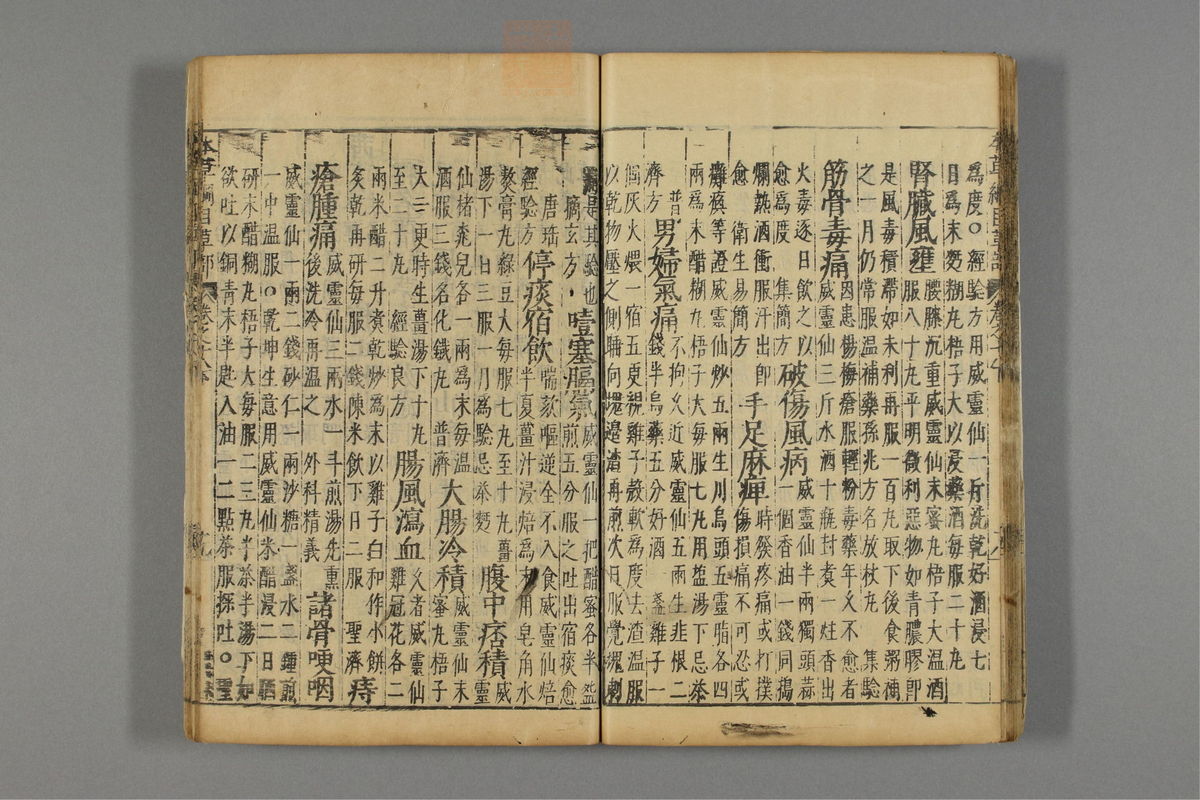 為度○經驗方用威靈仙一斤洗乾好酒浸七
日為末麪糊丸梧子大以浸藥酒每服二十丸
腎臟風壅
腰膝沉重威靈仙末蜜丸梧子大溫酒
服八十丸平明微利惡物如青膿膠即
是風毒積滯如未利再服一百丸取下後食粥補
之一月仍常服溫補藥孫兆方名放杖丸　集驗
筋骨毒痛
因患楊梅瘡服輕粉毒藥年久不愈者
威靈仙三斤水酒十瓶封煮一炷香出
火毒逐日飲之以
愈為度　集簡方
破傷風病
威靈仙半兩獨頭蒜
一個香油一錢同搗
爛熱酒衝服汗出即
愈　衛生易簡方
手足麻痺
時發疼痛或打撲
傷損痛不可忍或
癱瘓等證威靈仙炒五兩生川烏頭五靈脂各四
兩為末醋糊丸梧子大每服七丸用盬湯下忌茶
普
濟方
男婦氣痛
不拘久近威靈仙五兩生韭根二
錢半烏藥五分好酒一盞雞子一
個灰火煨一宿五更視雞子殼軟為度去渣溫服
以乾物壓之側睡向塊邊渣再煎次日服覺塊刺
痛是其驗也
摘玄方
噎塞膈氣
威靈仙一把醋蜜各半盌
煎五分服之吐出宿痰愈
唐瑶
經驗方
停痰宿飲
喘欬嘔逆全不入食威靈仙焙
半夏薑汁浸焙為末用皂角水
熬膏丸綠豆大每服七丸至十丸薑
湯下一日三服一月為驗忌茶麪
腹中痞積
威
靈
仙楮桃兒各一兩為末每溫
酒服三錢名化鐵丸　普濟
大腸冷積
威靈仙末
蜜丸梧子
大一更時生薑湯下十丸
至二十丸　經驗良方
腸風瀉血
久者威靈仙
雞冠花各二
兩米醋二升煮乾炒為末以雞子白和作小餅
炙乾再研每服二錢陳米飲下日二服　聖濟
痔
瘡腫痛
威靈仙三兩水一斗煎湯先熏
後洗冷再溫之　外科精義
諸骨哽咽
威靈仙一兩二錢砂仁一兩沙糖一盞水二鍾煎
一中溫服○乾坤生意用威靈仙米醋浸二日晒
研末醋糊丸梧子大每服二三丸半茶半湯下如
欲吐以銅青末半匙入油一二點茶服探吐○聖